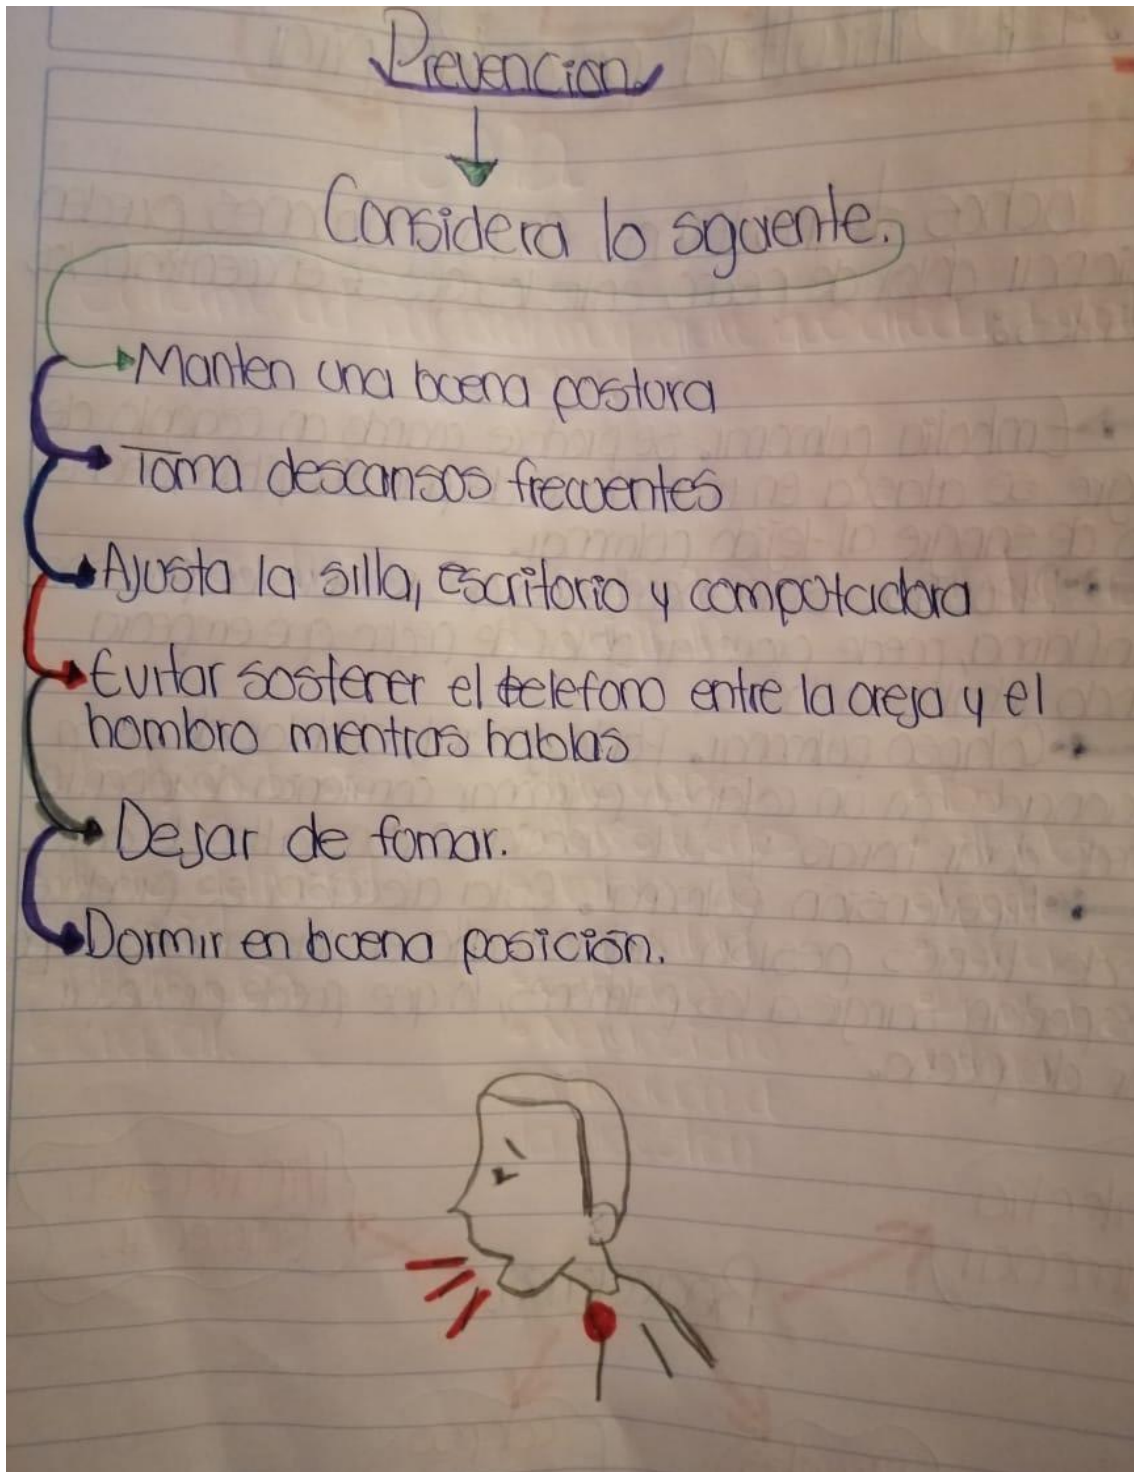 Prevencion
Considera lo sguente.
Manten una buena postura
Toma descansos frecuentes
Ajusta la silla, escritorio y computadora
Evitar sostener el telefono entre la oreja y el
hombro mientras hablas
Dejar de fumar.
Dormir en buena posición.